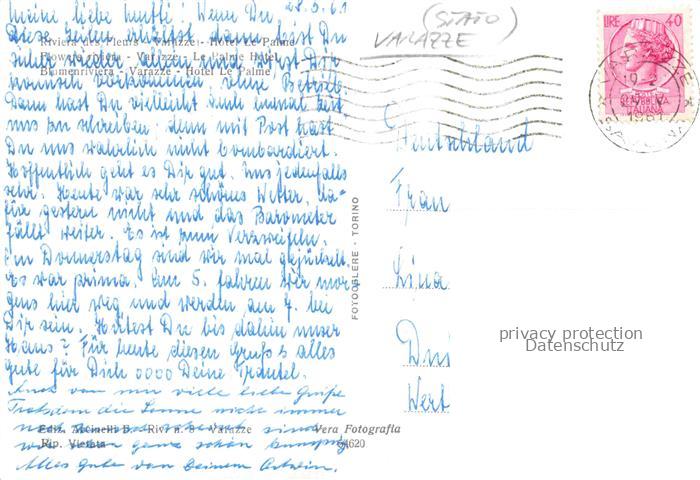 28.9.61
Meine liebe Mutti! Wenn Du
diese Zeilen erhältst dann hast Du
Riviera des Fleurs - Varazze - Hotel Le Palme
Flowers - Varazze - Le Palme Hotel
Blumenriviera - Varazze - Hotel Le Palme
ohne Betrieb.
Dann hast Du vielleicht auch einmal Zeit
uns zu schreiben; denn mit Post hast
Du uns wahrlich nicht bombardiert.
Hoffentlich geht es Dir gut. Uns jedenfalls
sehr. Heute war sehr schönes Wetter, da-
für gestern nicht und das Barometer
fällt weiter. Es ist zum Verzweifeln.
Am Donnerstag sind wir mal
Es war prima. Am 5. fahren wir mor-
gens hier weg und werden am 7. bei
Dir sein. Hütest Du bis dahin unser
Haus? Für heute diesen Gruß & alles
gute für Dich oooo Deine Trautel.
Auch von mir viele liebe Grüße
Trotzdem die Sonne nicht immer
sind
wir ganz schön
Alles Gute von Deinem
Ediz. B. - Riv. n. 8 - Varazze
Rip. Vietata
Vera Fotografia
64620
FOTOCELERE - TORINO
(STATO)
VARAZZE
LIRE 40
REPUBBLICA
ITALIANA
VARAZZE
1961
Deutschland
Frau
Lina
Wert
privacy protection
Datenschutz